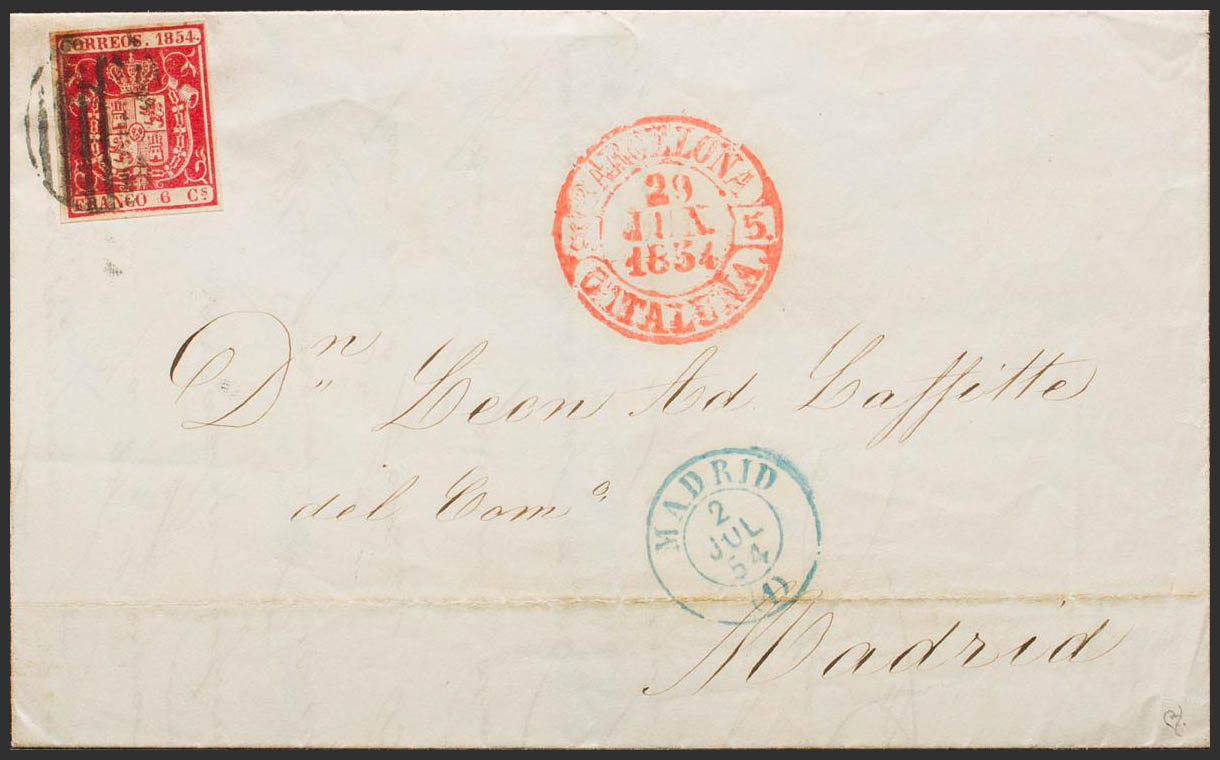 CORREOS. 1854.
FRANCO 6 Cs
BARCELONA
29
JUN
1854
5.
CATALUÑA.
Dn Leon Ad. Laffitte
del Como.
MADRID
2
JUL
54
(1)
Madrid